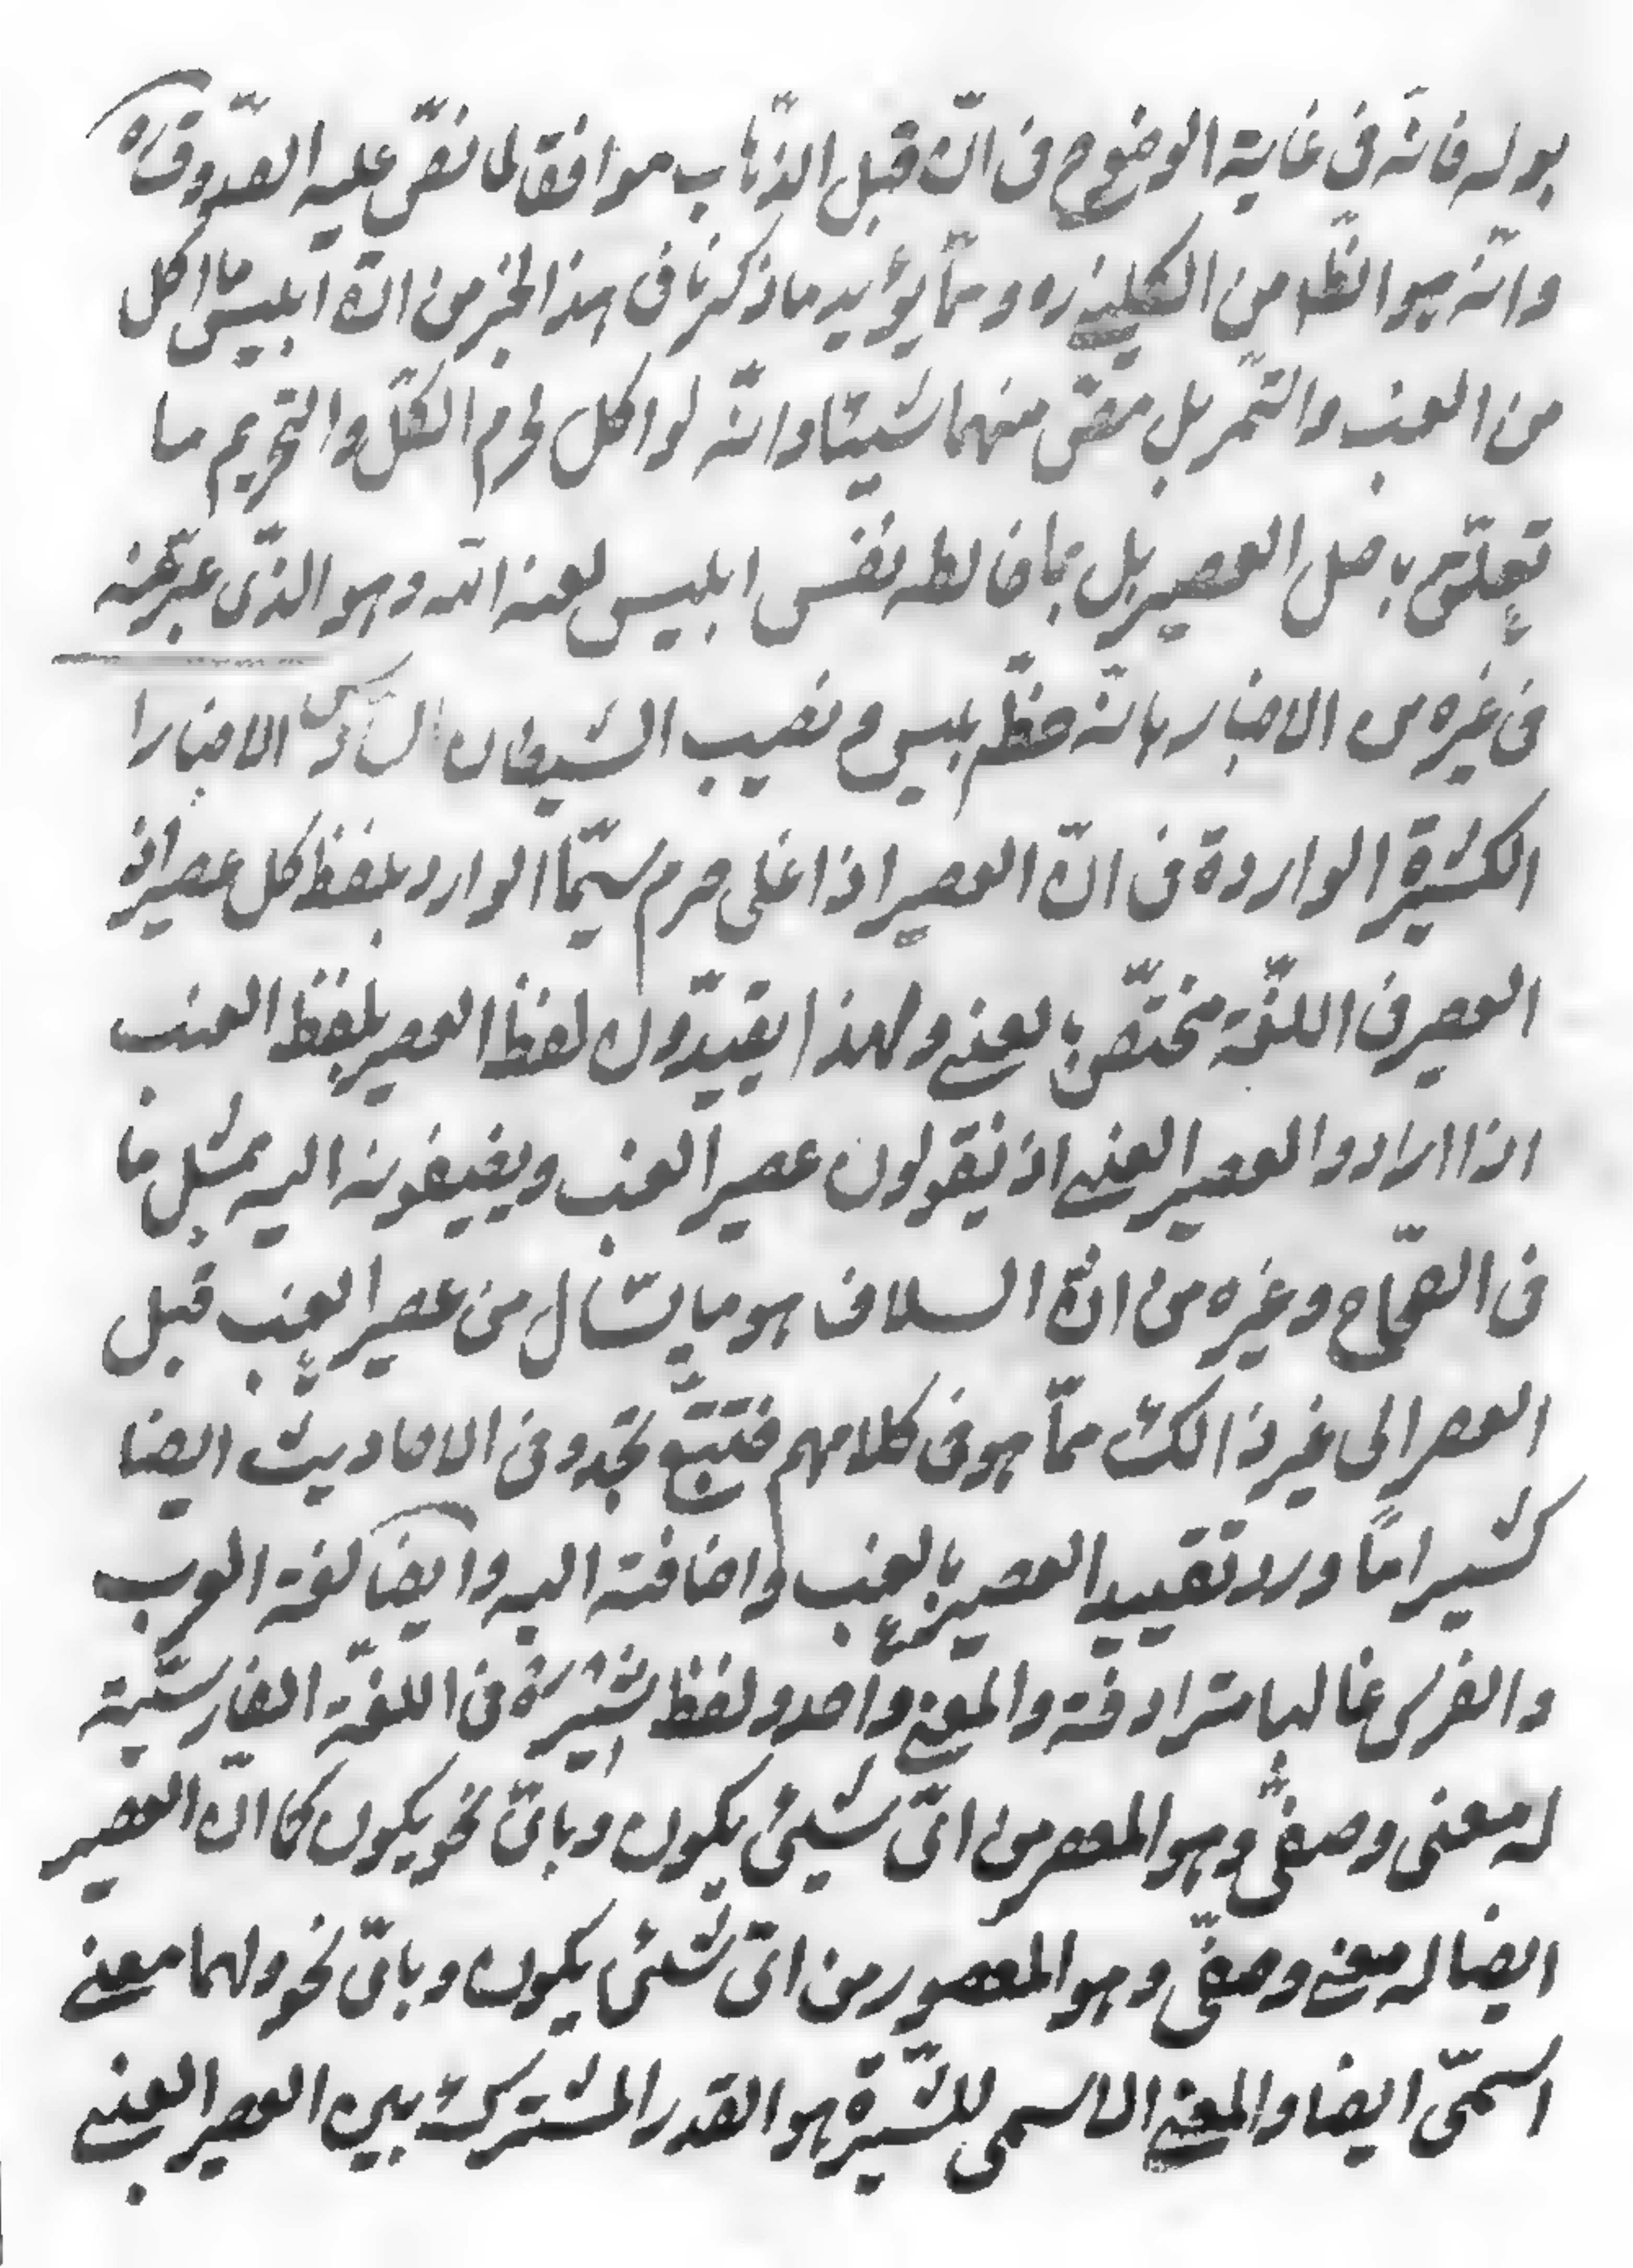 بوله فانه فى غاية الوضوح فى انّ قبل الذّهاب موافق لما نصّ عليه الصّدوق ره
وانّه هو الظّا من الكلينى ره وممّا يؤيد ما ذكرنا فى هذا الخبر من انّ ابليس ما اكل
من العنب والتّمر بل مصّ منهما شيئا وانّه لو اكل لحرم الكلّ والتحريم ما
تعلّق باصل العصير بل بما خالطه نفس ابليس لعنه الله وهو الذّى عبّر عنه
فى غيره من الاخبار بانّه حظّ ابليس ونصيب الشيطان السّادس الاخبار ا
الكثيرة الواردة فى انّ العصير اذا غلى حرم سيّما الوارد بلفظ كل عصير اذ
العصير فى اللغّة مختصّ بالعنبى ولهذا يقيّدون لفظ العصير بلفظ العنب
اذا ارادوا العصير العنبى اذ يقولون عصير العنب ويضيفونه اليه بمثل ما
فى الصّحاح وغيره من انّ السلاف هو ما يسال من عصير العنب قبل
العصر الى غير ذالك ممّا هو فى كلامهم فتتبّع تجد وفى الاحاديث ايضا
كثيرا مّا ورد تقييد العصير بالعنب واضافته اليه وايضا لغة العرب
والفرس غالبا مترادفة والمعنى واحد ولفظ شيره فى اللغّة الفارسيّة
له معنى وصفىّ وهو المعصر من اىّ شيئ يكون وباىّ نحو يكون كما انّ العصير
ايضا له معنى وصفىّ وهو المعصور من اىّ شئى يكون وباىّ نحو ولهما معنى
اسمىّ ايضا والمعنى الاسمى للشّيرة هو القدر المشترك بين العصير العنبى